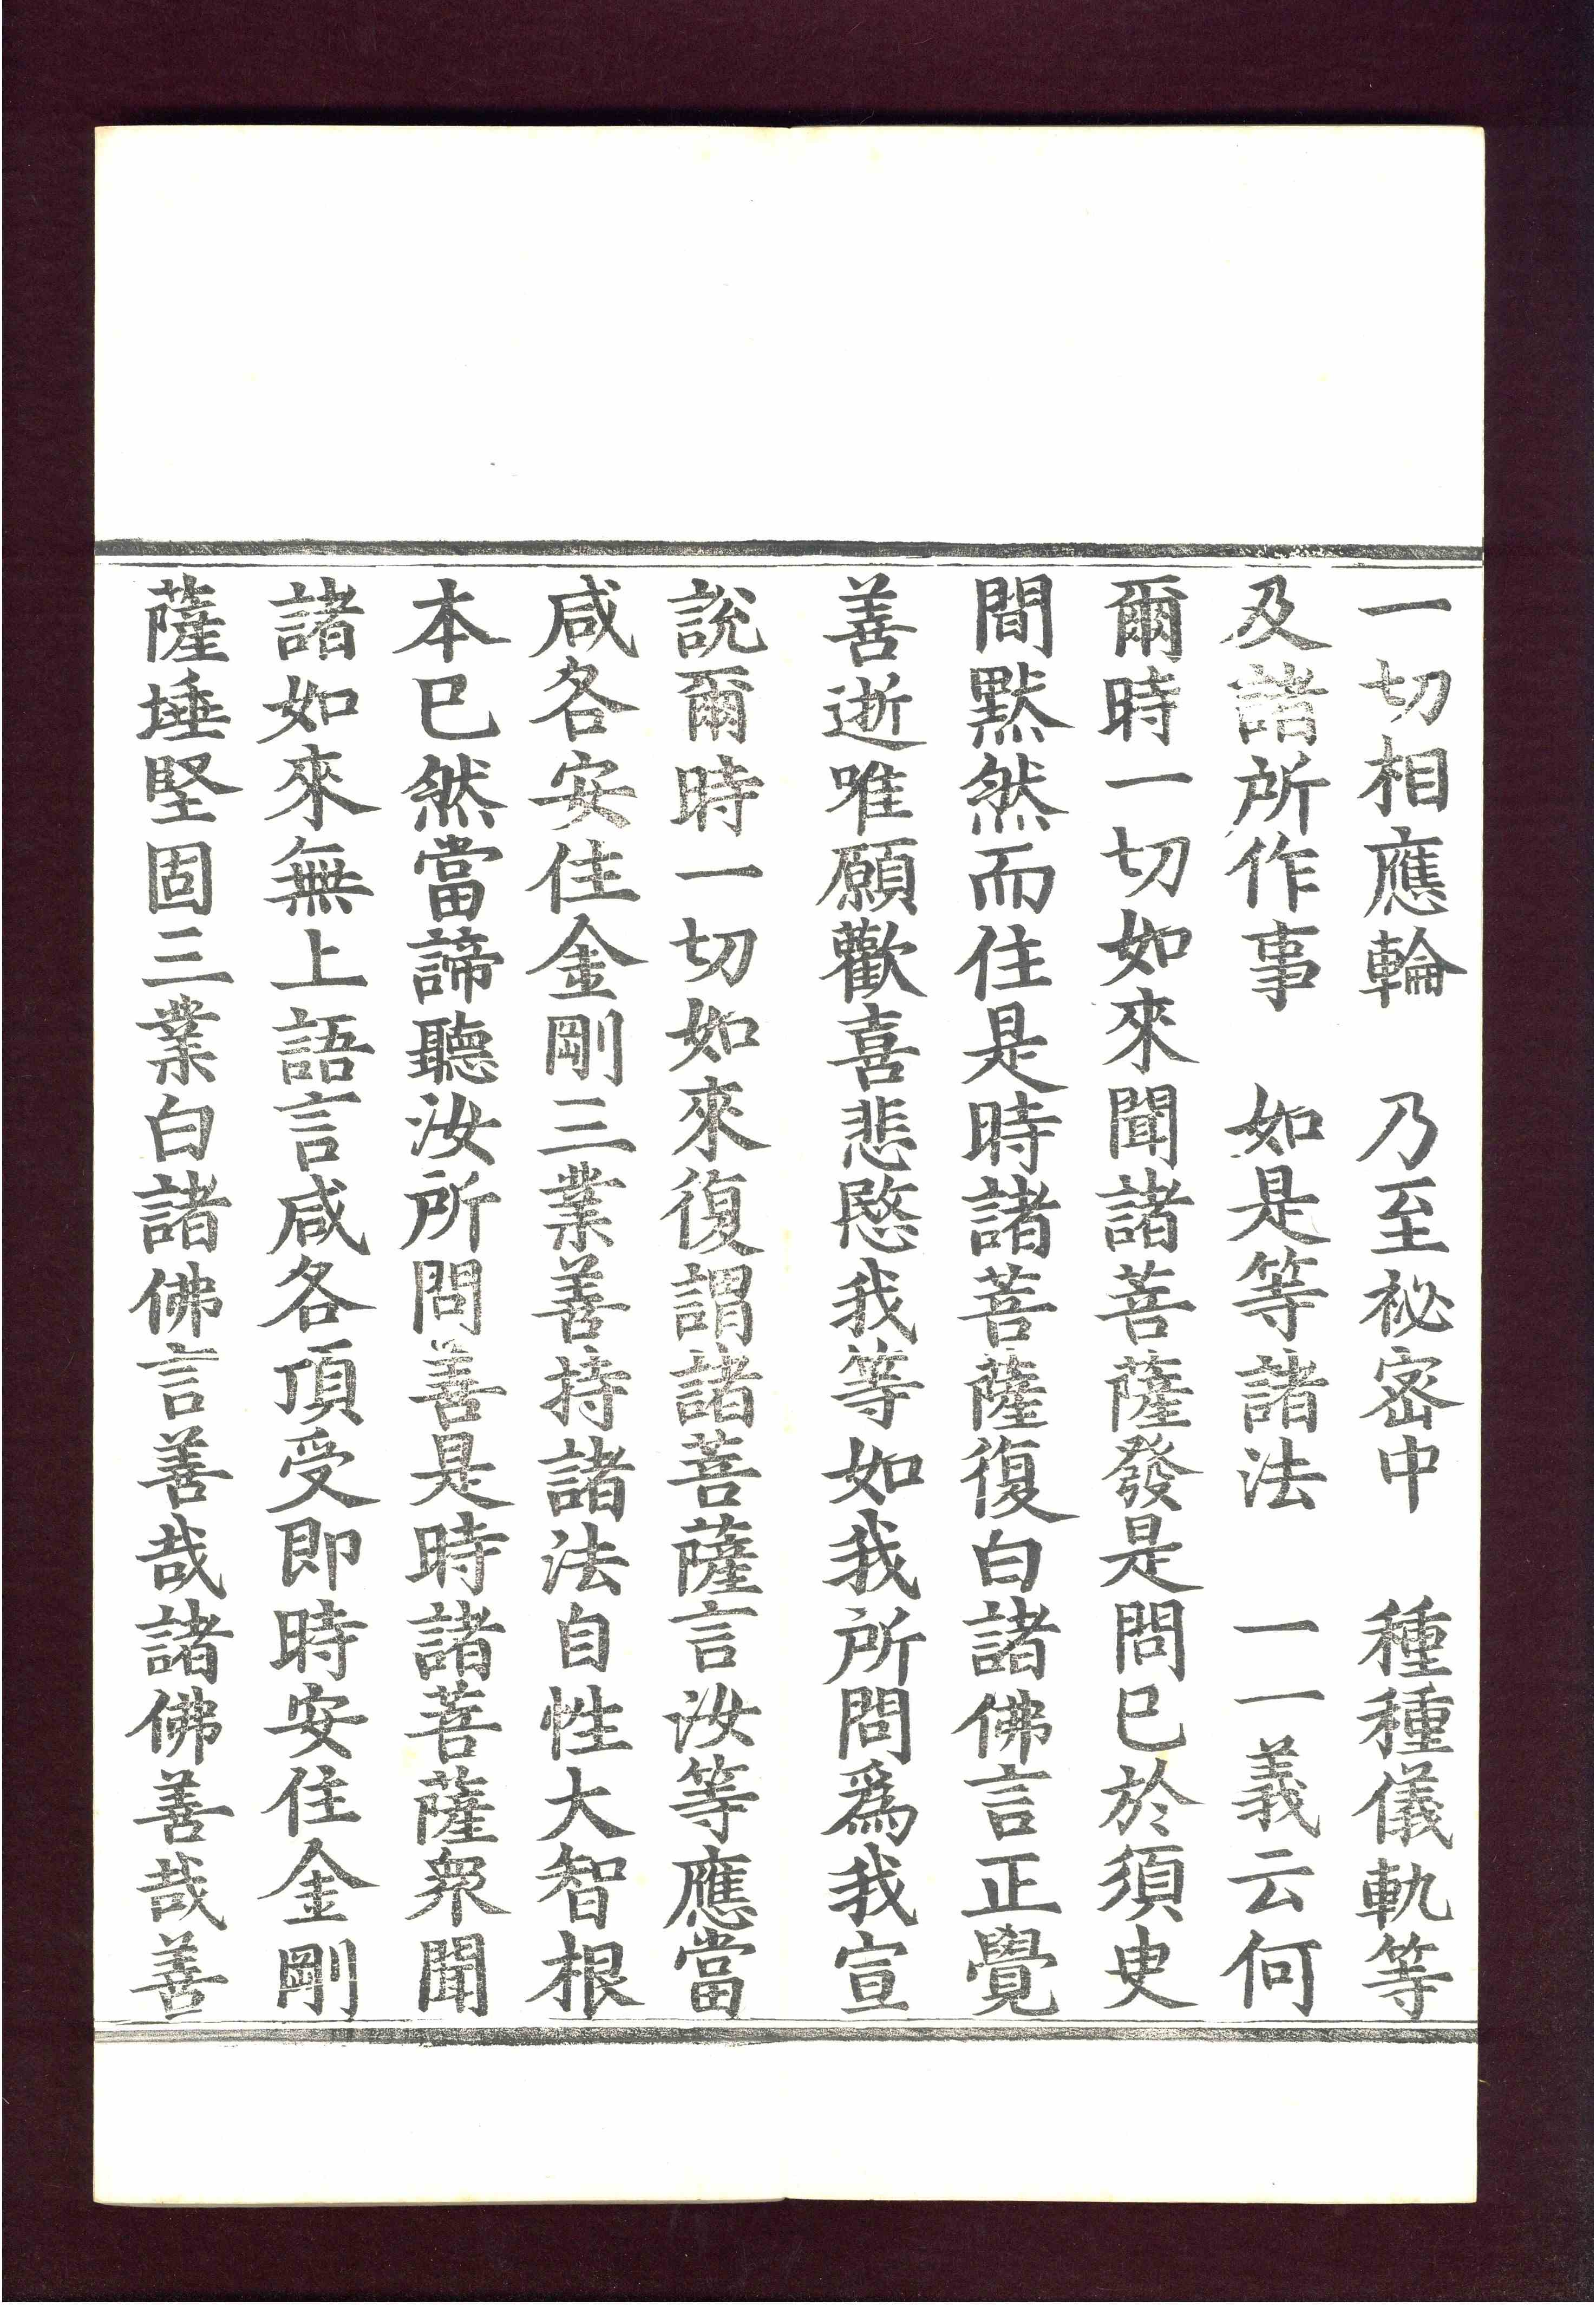 一切相應輪　乃至祕密中　種種儀軌等
及諸所作事　如是等諸法　一一義云何
爾時一切如來聞諸菩薩發是問已於須臾
間默然而住是時諸菩薩復白諸佛言正覺
善逝唯願歡喜悲愍我等如我所問爲我宣
說爾時一切如來復謂諸菩薩言汝等應當
咸各安住金剛三業善持諸法自性大智根
本已然當諦聽汝所問善是時諸菩薩衆聞
諸如來無上語言咸各頂受即時安住金剛
薩埵堅固三業白諸佛言善哉諸佛善哉善